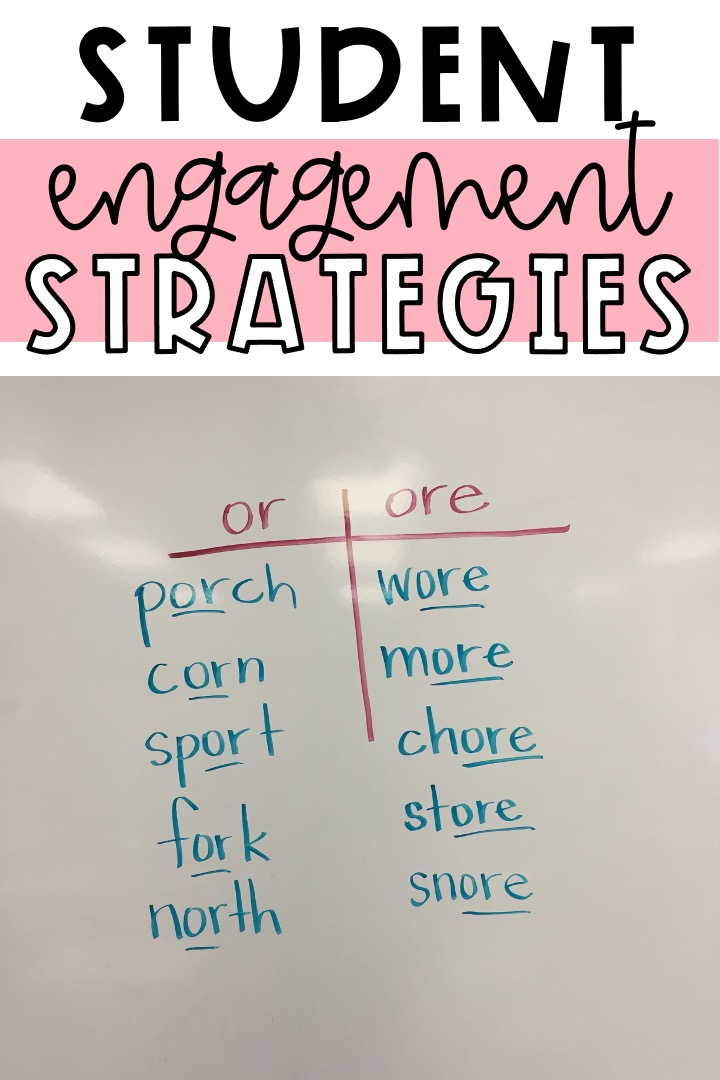 STUDENT
engagement
STRATEGIES
or ore
porch wore
corn more
sport chore
fork store
north snore